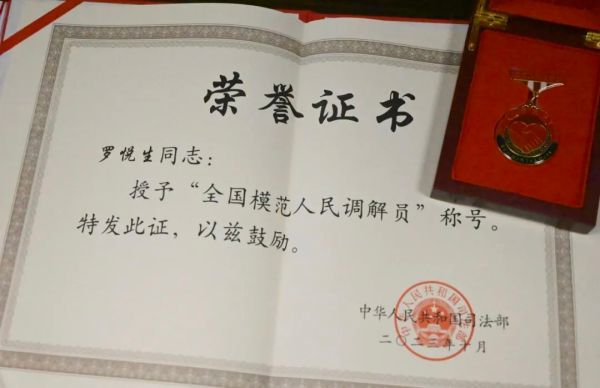 荣誉证书
罗悦生同志：
授予“全国模范人民调解员”称号。
特发此证，以兹鼓励。
中华人民共和国司法部
二〇二三年十月